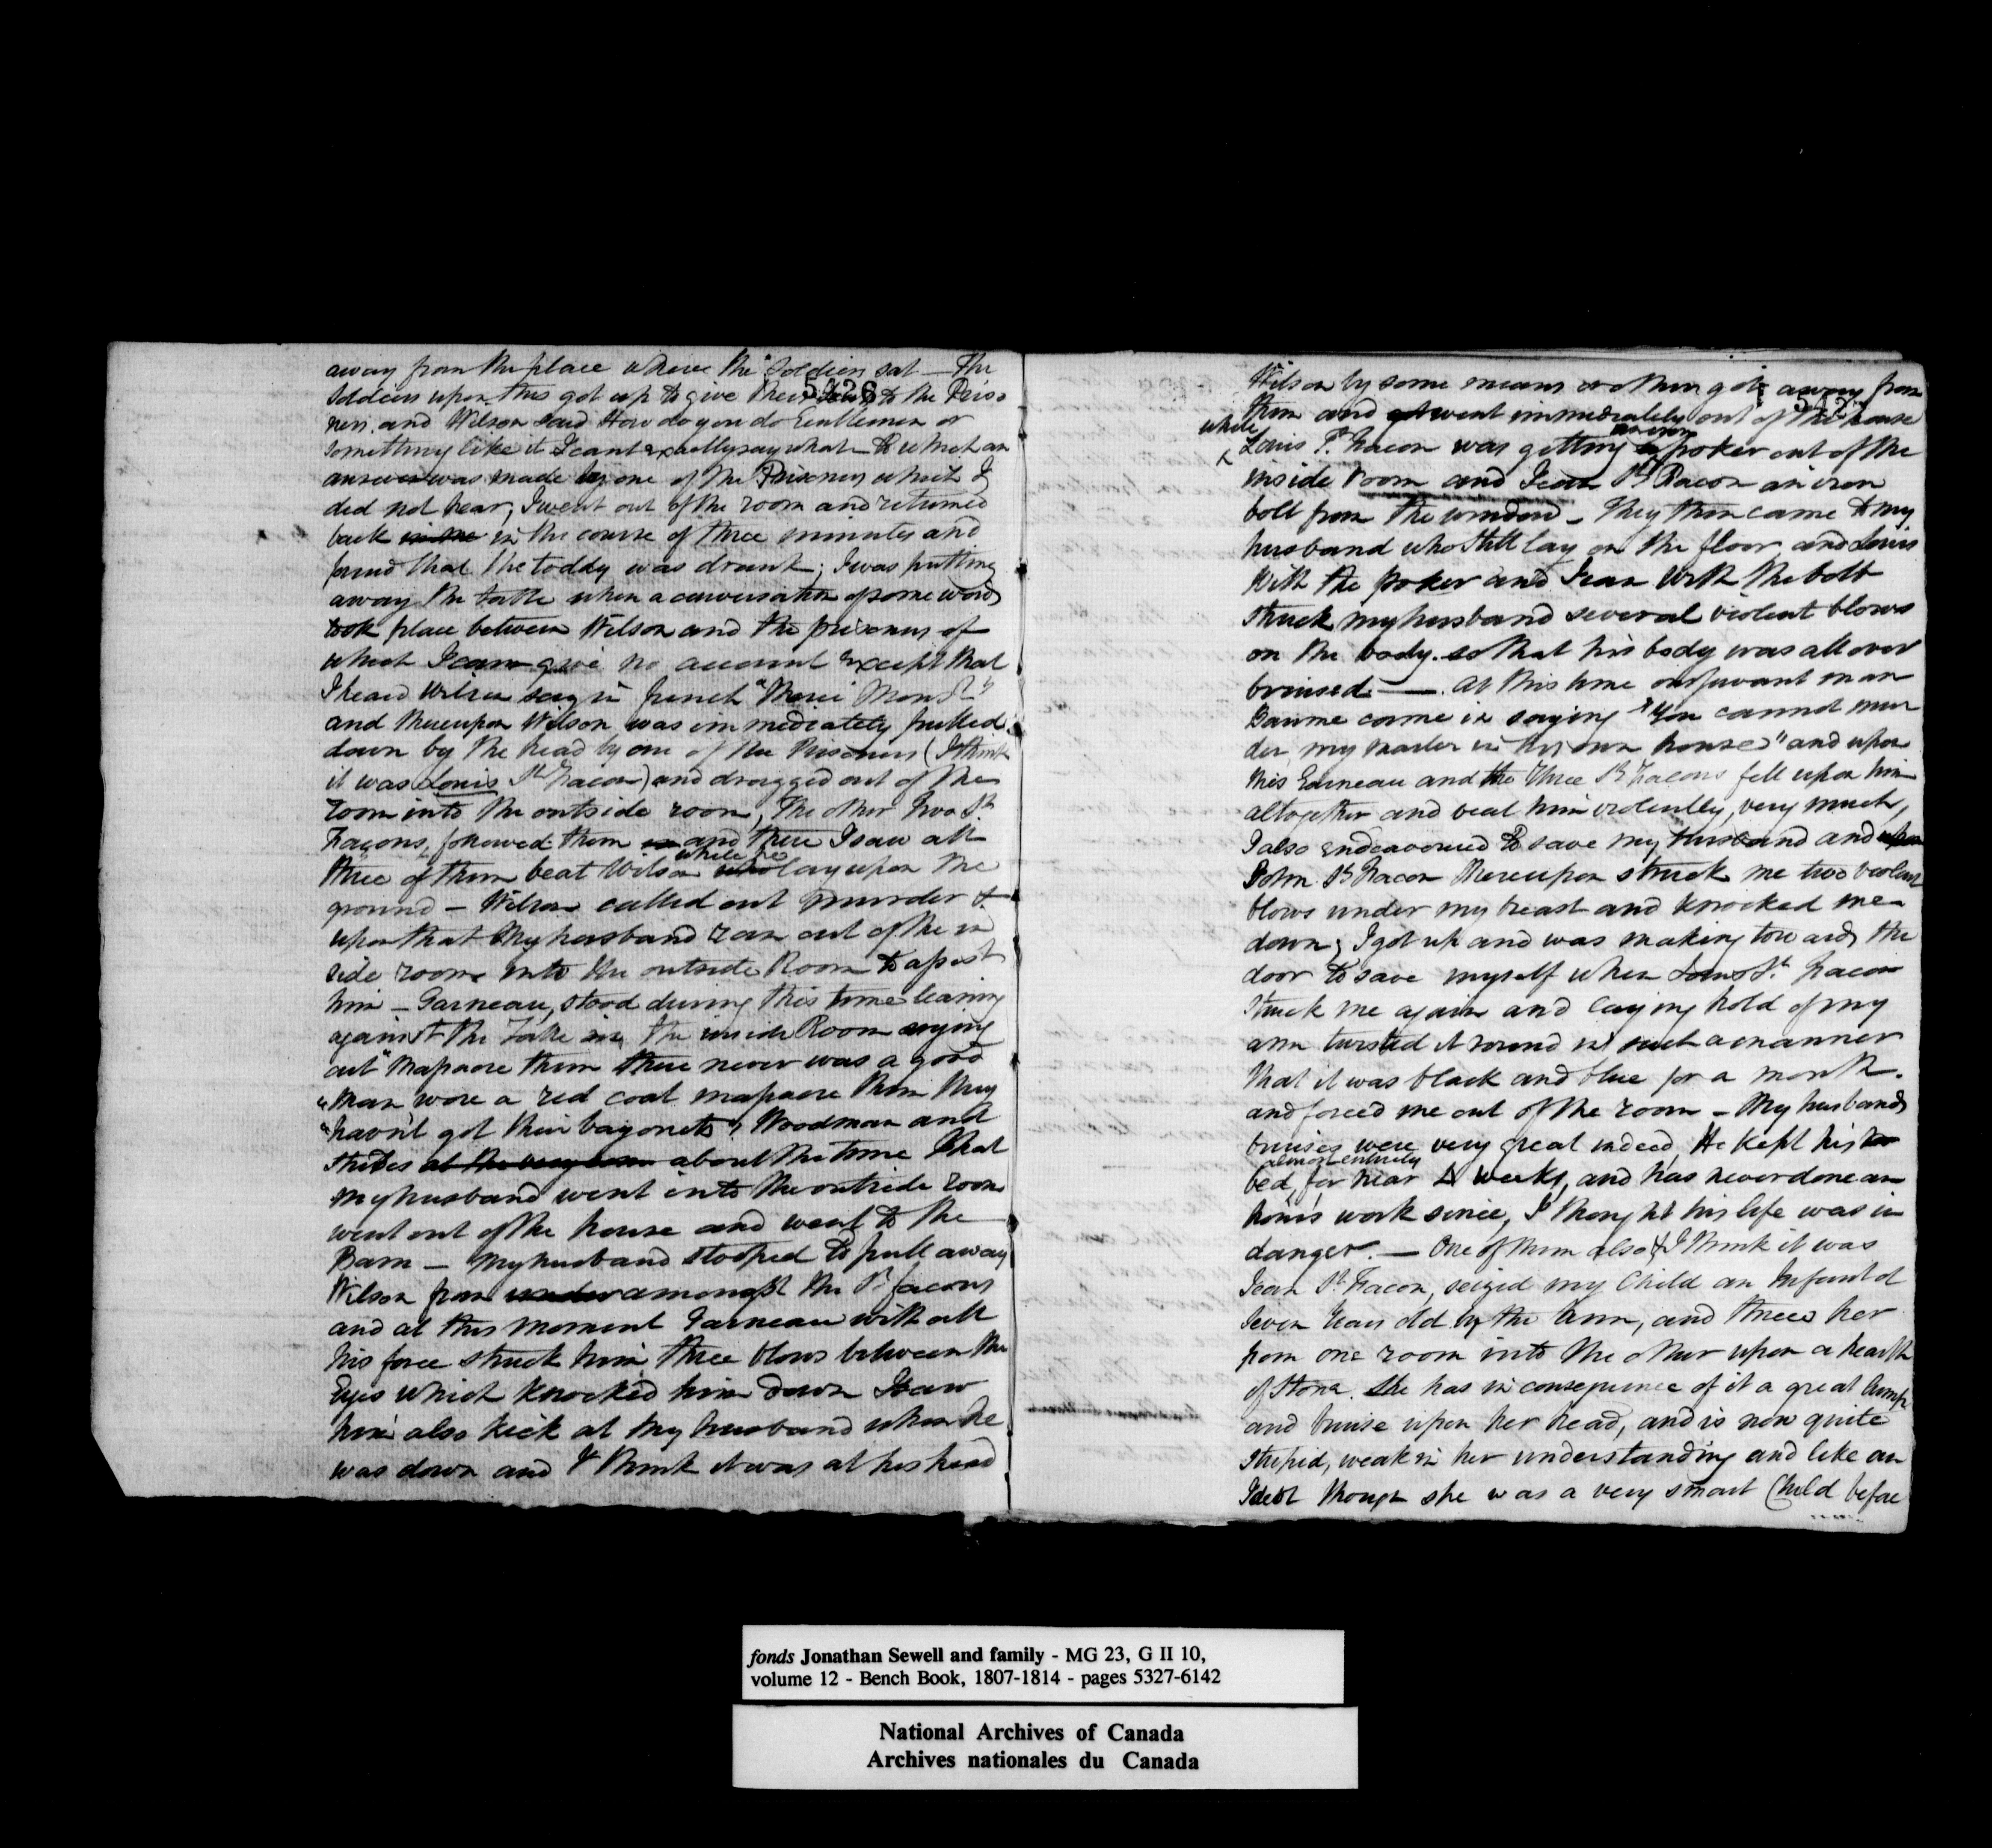 away from the place where the Soldiers sat — The
5426
Soldiers upon this got up to give their to the Priso
ners. and Wilson said How do you do Gentlemen or
something like it I cant exactly say what — to which an
answer was made by one of the Prisoners which I
did not hear, I went out of the room and returned
back in the in the course of three minutes and
found that the toddy was drank; I was putting
away the table when a conversation of some words
took place between Wilson and the prisoners of
which I can give no account except that
I heard Wilson say in french "Merci Monsr."
and thereupon Wilson was immediately pulled
down by the head by one of the Prisoners (I think
it was Louis St. Facon) and dragged out of the
room into the outside room, the other two St.
Facons, followed them and there I saw all
while he
three of them beat Wilson who lay upon the
ground — Wilson called out Murder &
upon that My husband ran out of the in
side room into the outside Room to assist
him — Garneau, stood during this time leaning
against the Table in the inside Room crying
out "Massacre them there never was a good
"Man wore a red coat massacre them they
"havn't got their bayonets", Woodman and
at the very about the time that
my husband went into the outside room
went out of the house and went to the
Barn — My husband stooped to pull away
Wilson from under amongst the St. facons
and at this moment Garneau with all
his force struck him three blows between the
Eyes which knocked him down I saw
him also kick at my husband when he
was down and I think it was at his head
Wilson by some means or other got away from
5427
them and got went immediately out of the house
while an iron
Louis St. Facon was getting a poker out of the
inside room and Jean St. Facon an iron
bolt from the window — They then came to my
husband who still lay on the floor and Louis
with the poker and Jean with the bolt
struck my husband several violent blows
on the body. so that his body was all over
bruised. — At this time our servant man
Baume came in saying "You cannot mur
der my master in his own house" and upon
this Garneau and the three St. Facons fell upon him
altogether and beat him violently, very much,
I also endeavoured to save my husband and upon
John St. Facon thereupon struck me two violent
blows under my breast and knocked me
down; I got up and was making towards the
door to save myself when Louis St. Facon
struck me again and laying hold of my
arm twisted it round in such a manner
that it was black and blue for a month.
and forced me out of the room — My husbands
bruises were very great indeed, He kept his
almost entirely
bed, for near 2 weeks, and has never done an
hours work since, I thought his life was in
danger. — One of them also & I think it was
Jean St. Facon, seized my Child an Infant of
Seven Years old by the Arm, and threw her
from one room into the other upon a hearth
of Stone. She has in consequence of it a great lump
and bruise upon her head, and is now quite
stupid, weak in her understanding and like an
Ideot though she was a very smart Child before
fonds Jonathan Sewell and family - MG 23, G II 10,
volume 12 - Bench Book, 1807-1814 - pages 5327-6142
National Archives of Canada
Archives nationales du Canada